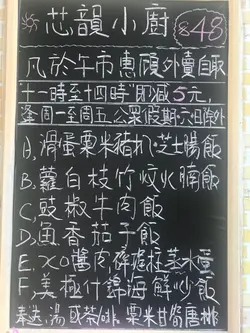 芯韻小廚 $48
凡於午市惠顧外賣自取
十一時至十四時 即減5元,
逢周一至周五,公眾假期·六日除外
A,滑蛋粟米豬扒·芝士腸飯
B.蘿白枝竹炆火腩飯
C,豉椒牛肉飯
D.魚香茄子飯
E.XO醬肉碎 蒸水蛋
F.美極什錦海鮮炒飯
湯或茶/啡.粟米甘筍唐排